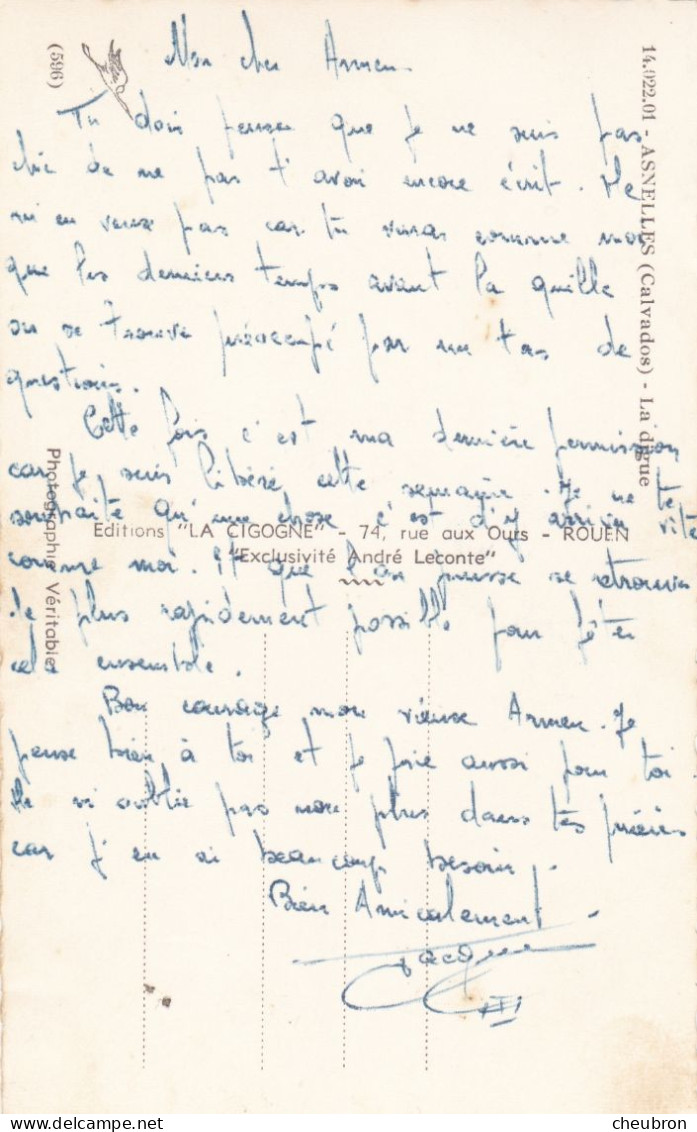 Mon cher Armen
Tu dois penser que je ne suis pas
chic de ne pas t'avoir encore écrit. Ne
m'en veux pas car tu verras comme moi
que les derniers temps avant la quille
on se trouve préoccupé par un tas de
questions.
Cette fois c'est ma dernière permission
car je suis libéré cette semaine. Je ne te
souhaite qu'une chose c'est d'y arriver vite
comme moi. Et que l'on puisse se retrouver
le plus rapidement possible pour fêter
cela ensemble.
Bon courage mon vieux Armen. Je
pense bien à toi et je prie aussi pour toi
Ne m'oublie pas non plus dans tes prières
car j'en ai beaucoup besoin.
Bien Amicalement.
Jacques
14.022.01 - ASNELLES (Calvados) - La digue
(596)
Photographie Véritable
Editions "LA CIGOGNE" - 74, rue aux Ours - ROUEN
"Exclusivité André Leconte"
cheubron